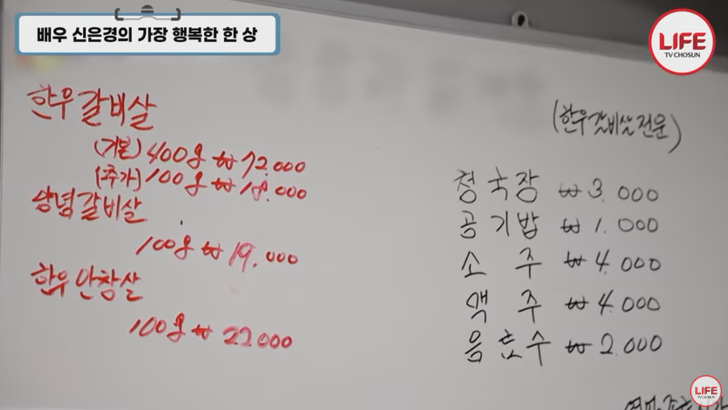 배우 신은경의 가장 행복한 한 상
LIFE
TV CHOSUN
한우갈비살
(기본) 400g ₩72.000
(추가) 100g ₩18.000
양념갈비살
100g ₩19.000
한우안창살
100g ₩22000
(한우갈비살전문)
청국장 ₩3.000
공기밥 ₩1.000
소주 ₩4.000
맥주 ₩4.000
음료수 ₩2.000
LIFE